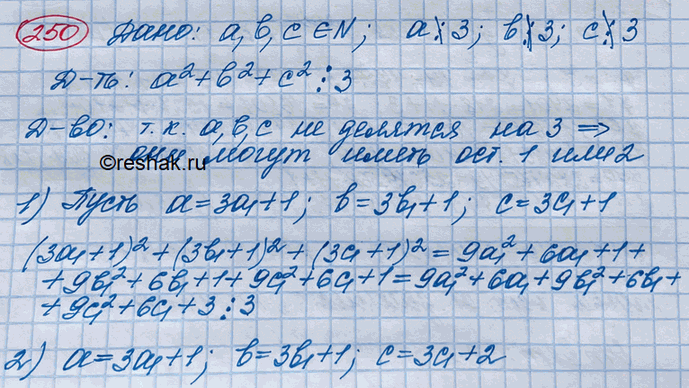 250 Дано: a, b, c ∈ N; a ⋮̸ 3; b ⋮̸ 3; c ⋮̸ 3
Д-ть: a² + b² + c² ⋮ 3
Д-во: т.к. a, b, c не делятся на 3 ⇒
они могут иметь ост. 1 или 2
©reshak.ru
1) Пусть a = 3a₁ + 1; b = 3b₁ + 1; c = 3c₁ + 1
(3a₁ + 1)² + (3b₁ + 1)² + (3c₁ + 1)² = 9a₁² + 6a₁ + 1 +
+ 9b₁² + 6b₁ + 1 + 9c₁² + 6c₁ + 1 = 9a₁² + 6a₁ + 9b₁² + 6b₁ +
+ 9c₁² + 6c₁ + 3 ⋮ 3
2) a = 3a₁ + 1; b = 3b₁ + 1; c = 3c₁ + 2